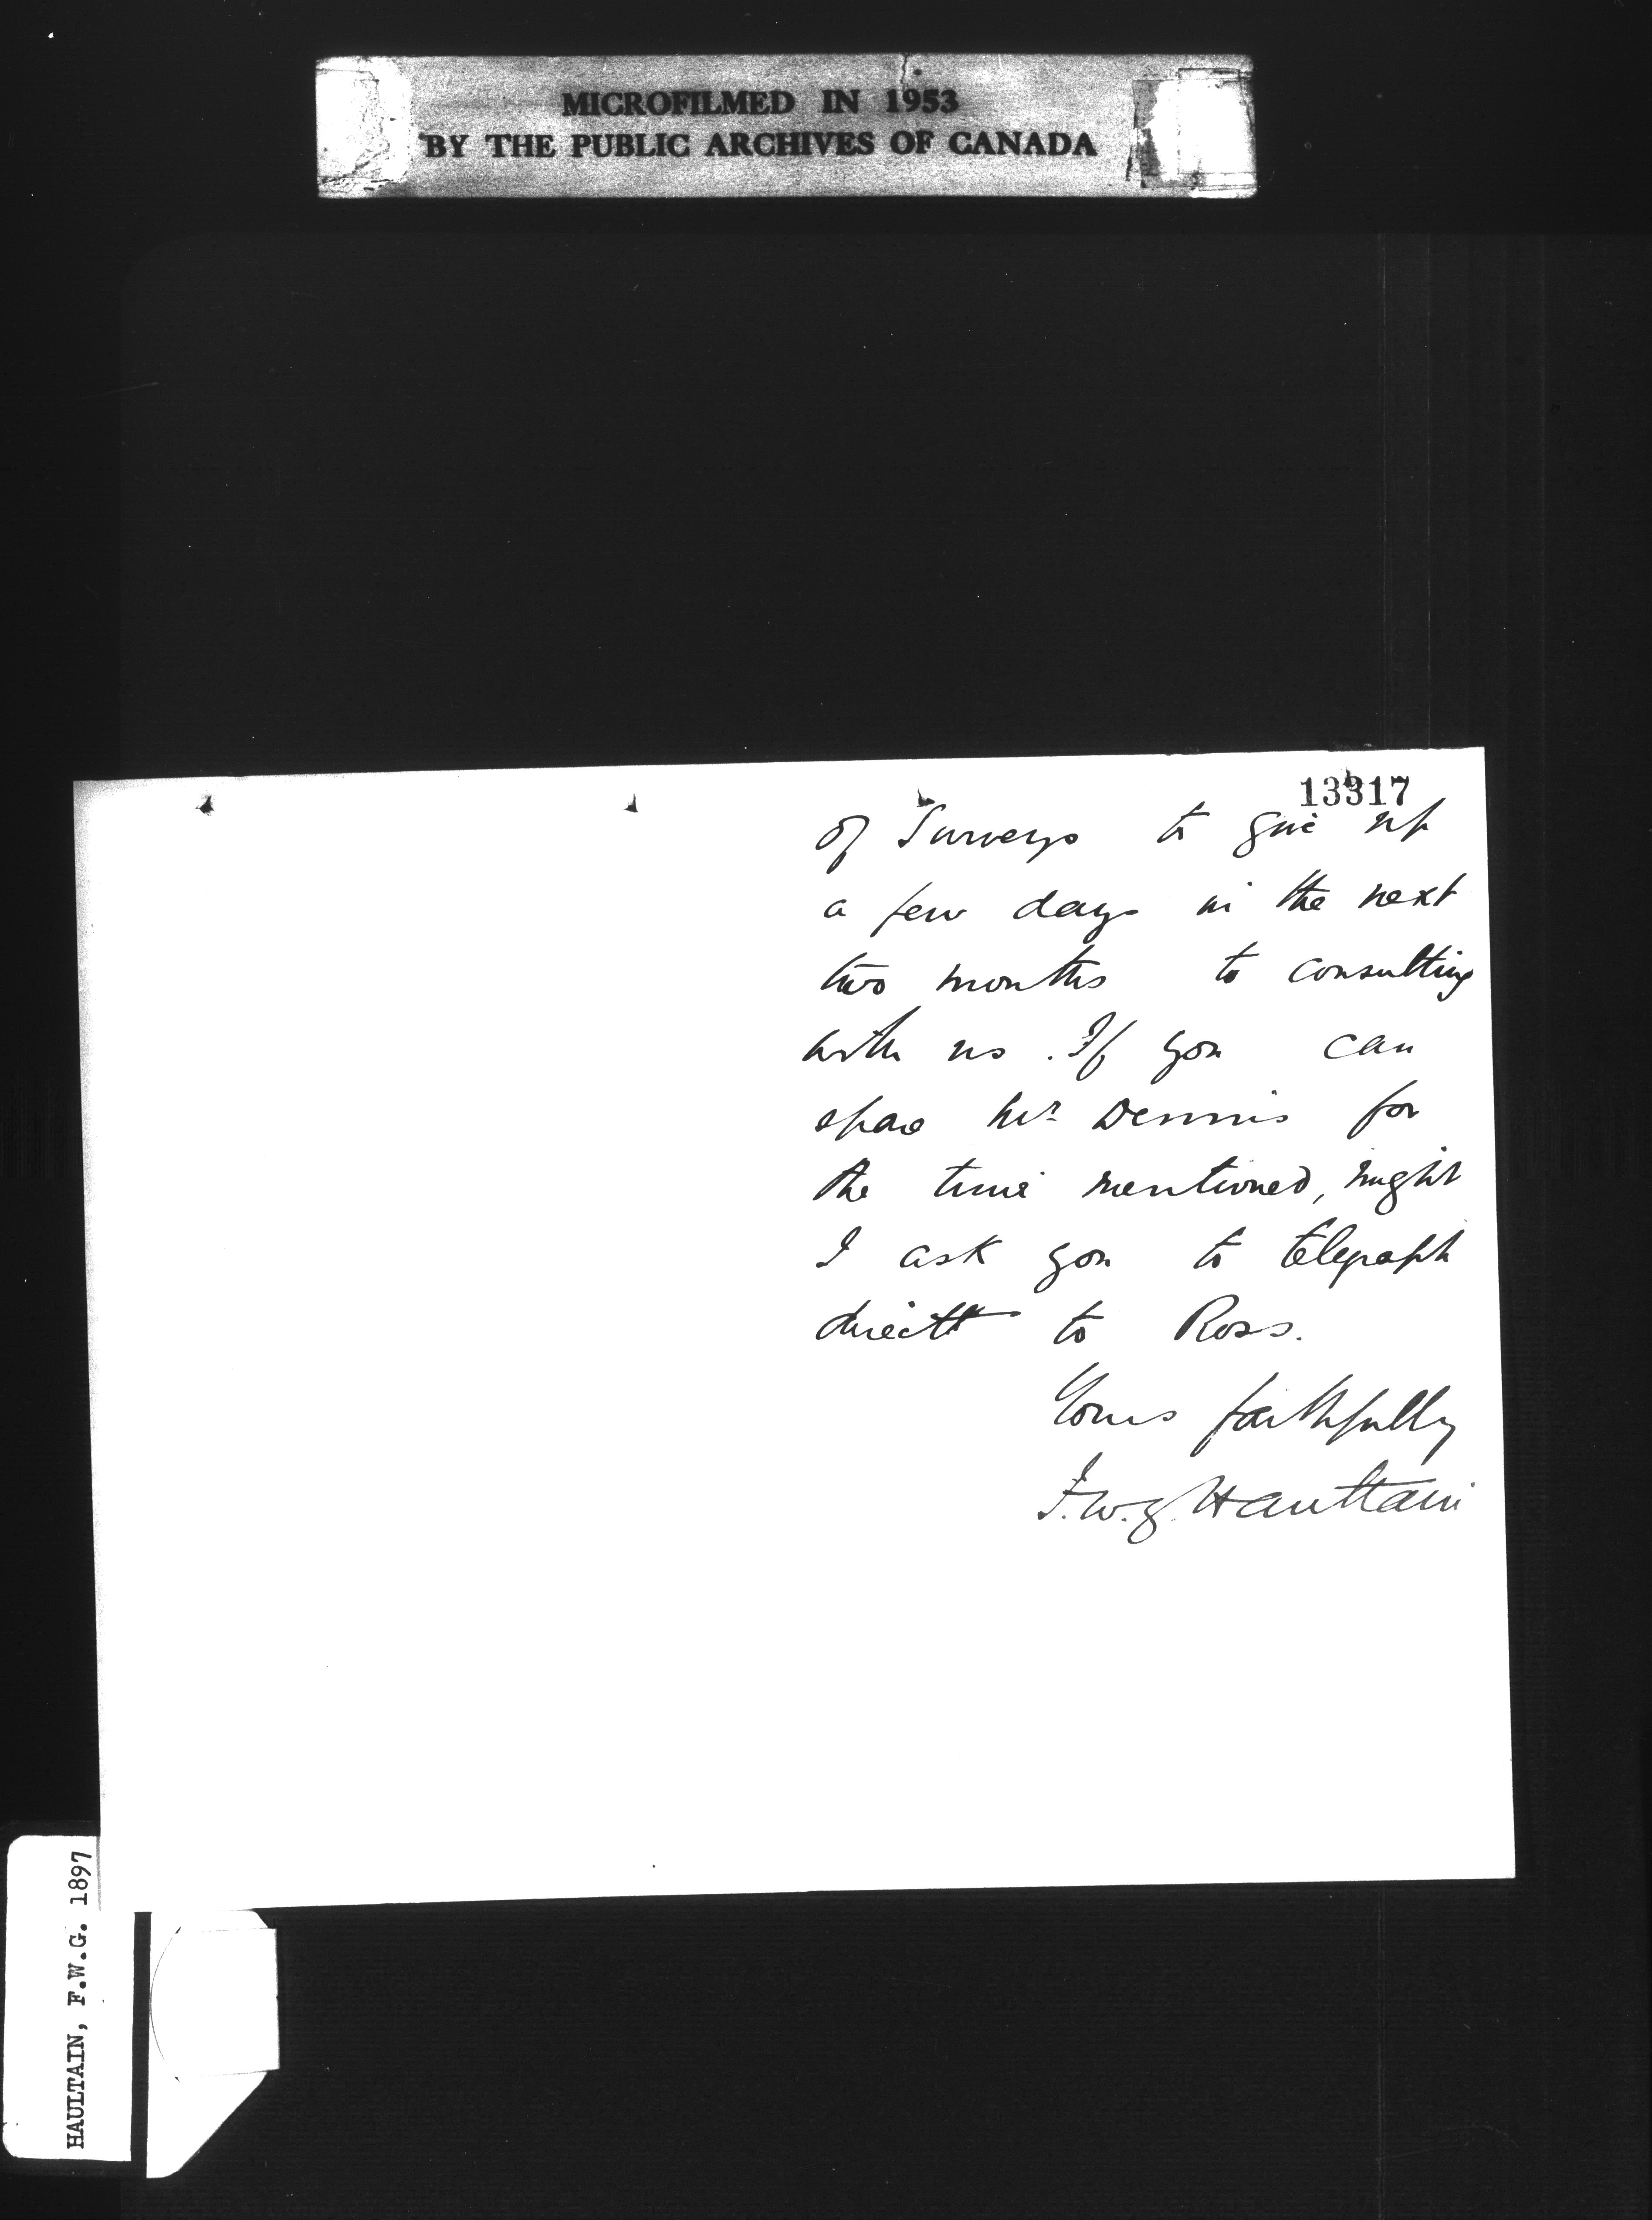 MICROFILMED IN 1953
BY THE PUBLIC ARCHIVES OF CANADA
13317
of Surveys to give up
a few days in the next
two months to consulting
with us. If you can
spare Mr Dennis for
the time mentioned, might
I ask you to telegraph
direct to Ross.
Yours faithfully
F.W.G. Haultain
HAULTAIN, F.W.G. 1897